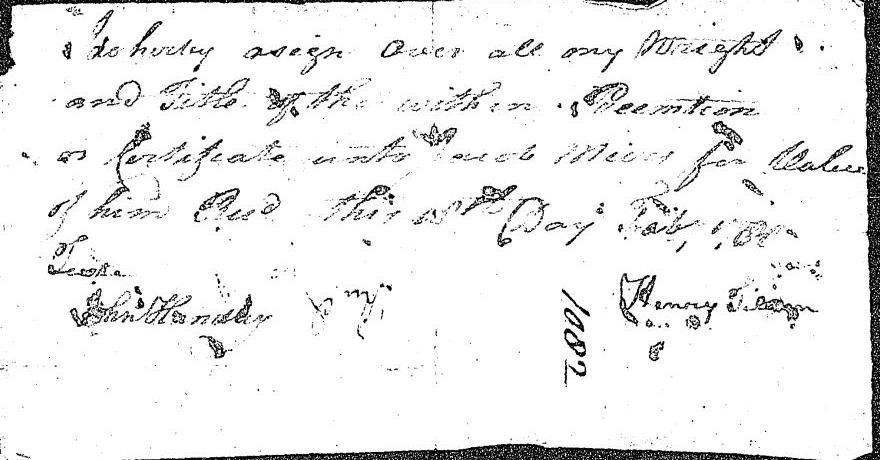 I do herby asign over all my Wright
and Title of the within Preemtion
or Certificate unto Jacob Miers for Value
of him Recd this 18th Day Feb, 178
Teste
John Handley
Henry Tilam
1082